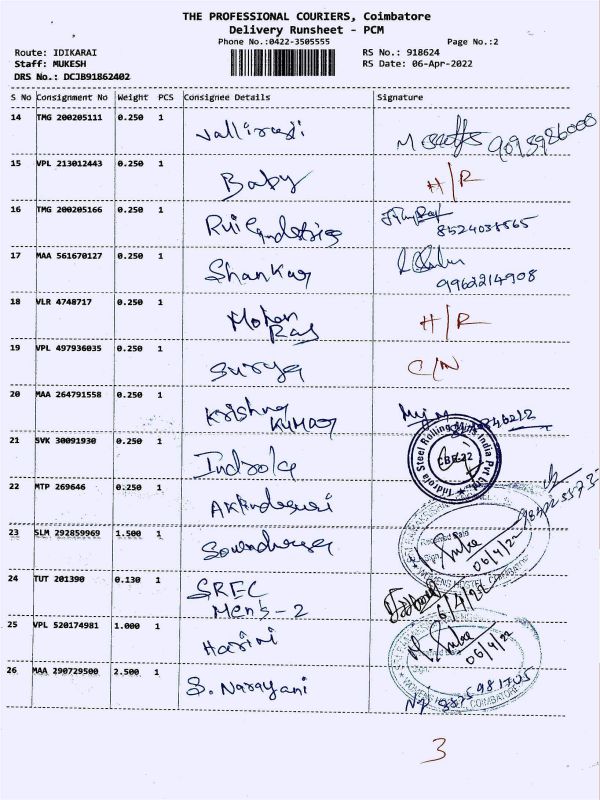 THE PROFESSIONAL COURIERS, Coimbatore
Delivery Runsheet - PCM
Phone No.:0422-3505555 Page No.:2
Route: IDIKARAI RS No.: 918624
Staff: MUKESH RS Date: 06-Apr-2022
DRS No.: DCJB91862402
S No Consignment No Weight PCS Consignee Details Signature
14 TMG 200205111 0.250 1
15 VPL 213012443 0.250 1 Baby H/R
16 TMG 200205166 0.250 1
17 MAA 561670127 0.250 1 Shankar
9962214908
18 VLR 4748717 0.250 1 Mohan H/R
Raj
19 VPL 497936035 0.250 1 Surya C/N
20 MAA 264791558 0.250 1 Krishna
Kumar
21 SVK 30091930 0.250 1 Indrola
Indrola Steel Rolling Mills India Pvt Ltd
CBE-22
22 MTP 269646 0.250 1
23 SLM 292859969 1.500 1
06/4/22
24 TUT 201390 0.130 1 SREC
Men's-2
6/4/22
25 VPL 520174981 1.000 1 Harini
06/4/22
26 MAA 290729500 2.500 1 S. Narayani
3